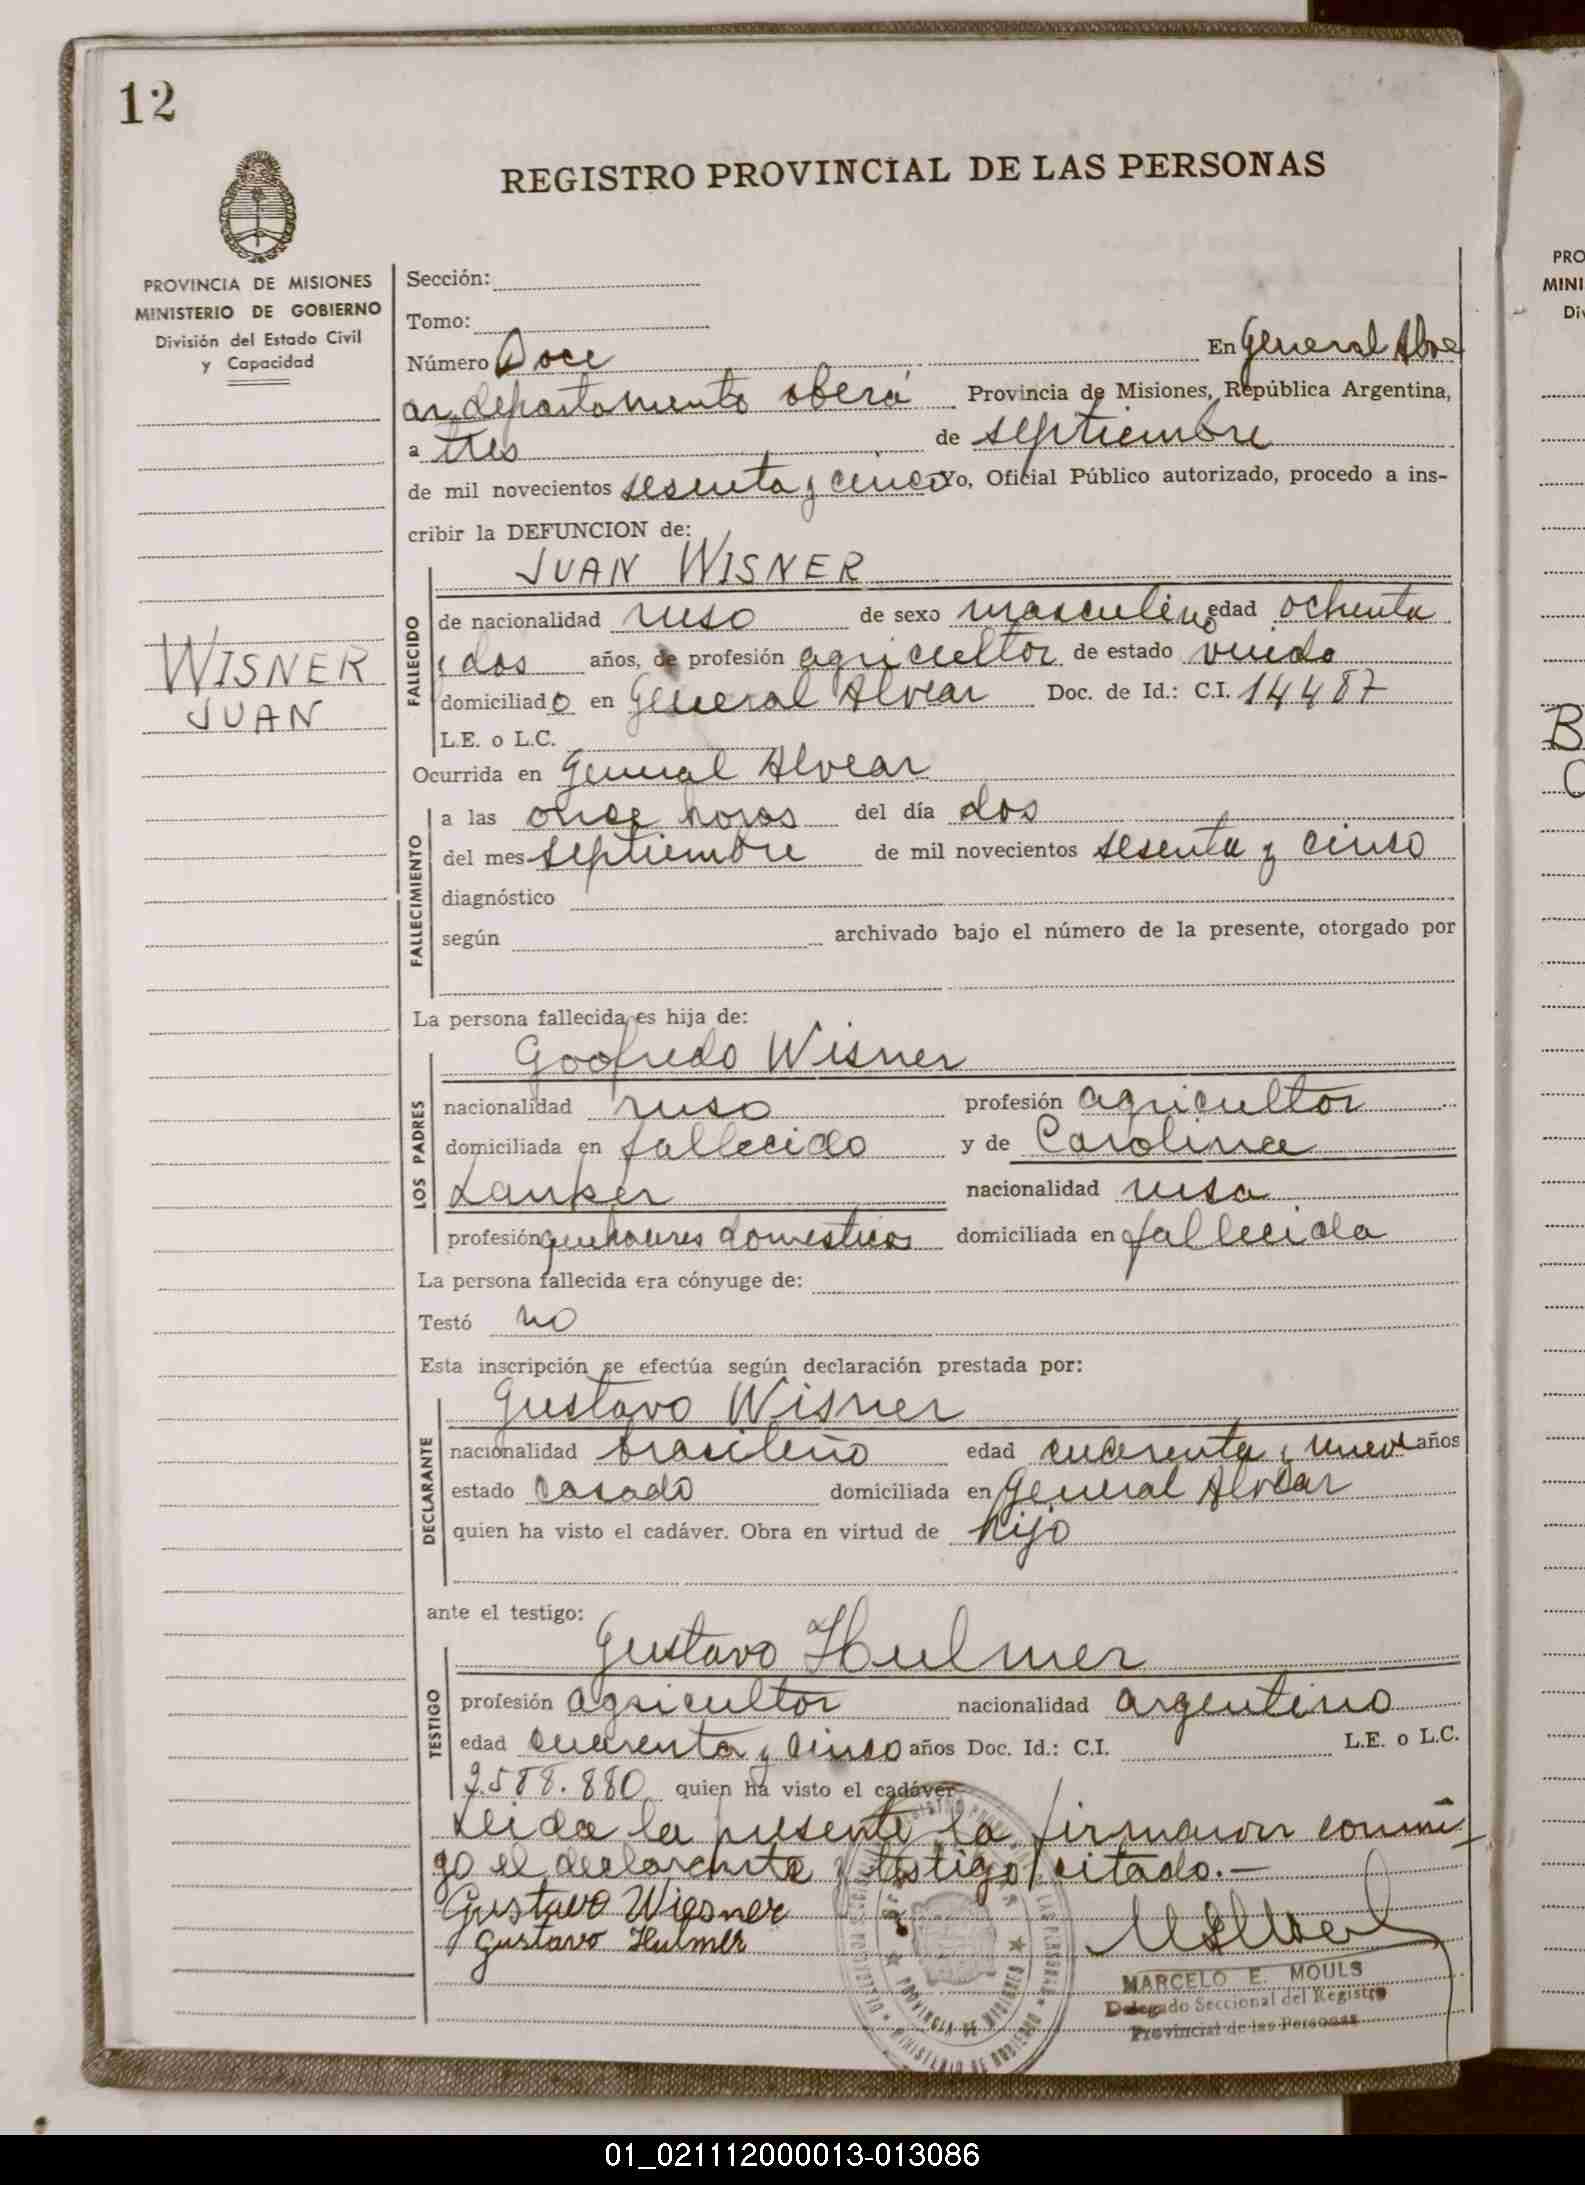 12
REGISTRO PROVINCIAL DE LAS PERSONAS
PROVINCIA DE MISIONES
MINISTERIO DE GOBIERNO
División del Estado Civil
y Capacidad
WISNER
JUAN
Sección:
Tomo:
Número Doce En General Alve
ar departamento oberá Provincia de Misiones, República Argentina,
a tres de septiembre
de mil novecientos sesenta y cinco Yo, Oficial Público autorizado, procedo a ins-
cribir la DEFUNCION de:
JUAN WISNER
FALLECIDO
de nacionalidad ruso de sexo masculino edad ochenta
y dos años, de profesión agricultor de estado viudo
domiciliado en General Alvear Doc. de Id.: C.I. 14487
L.E. o L.C.
Ocurrida en General Alvear
FALLECIMIENTO
a las once horas del día dos
del mes septiembre de mil novecientos sesenta y cinco
diagnóstico
según archivado bajo el número de la presente, otorgado por
La persona fallecida es hija de:
Goofredo Wisner
LOS PADRES
nacionalidad ruso profesión agricultor
domiciliada en fallecido y de Carolina
Lanker nacionalidad rusa
profesión quehaceres domesticos domiciliada en fallecida
La persona fallecida era cónyuge de:
Testó no
Esta inscripción se efectúa según declaración prestada por:
Gustavo Wisner
DECLARANTE
nacionalidad brasileño edad cuarenta y nueve años
estado casado domiciliada en General Alvear
quien ha visto el cadáver. Obra en virtud de hijo
ante el testigo:
Gustavo Hulmer
TESTIGO
profesión agricultor nacionalidad argentino
edad cuarenta y cinco años Doc. Id.: C.I. L.E. o L.C.
2.588.880 quien ha visto el cadáver
Leida la presente la firmaron conmi-
go el declarante y testigo citado.—
Gustavo Wiesner
Gustavo Hulmer
MARCELO E. MOULS
Delegado Seccional del Registro
Provincial de las Personas
PRO
MINI
Div
B
C
01_021112000013-013086